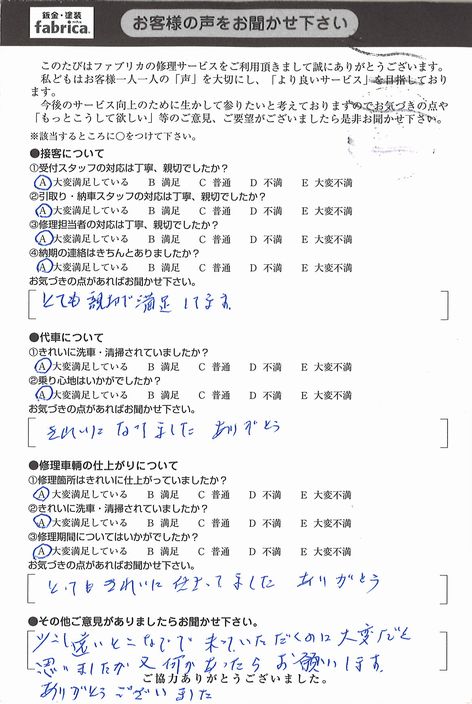 鈑金・塗装
fabrica.
お客様の声をお聞かせ下さい
このたびはファブリカの修理サービスをご利用頂きまして誠にありがとうございます。
私どもはお客様一人一人の「声」を大切にし、「より良いサービス」を目指しており
ます。
今後のサービス向上のために生かして参りたいと考えておりますのでお気づきの点や
「もっとこうして欲しい」等のご意見、ご要望がございましたら是非お聞かせ下さい。
※該当するところに○をつけて下さい。
●接客について
①受付スタッフの対応は丁寧、親切でしたか？
A 大変満足している B 満足 C 普通 D 不満 E 大変不満
②引取り・納車スタッフの対応は丁寧、親切でしたか？
A 大変満足している B 満足 C 普通 D 不満 E 大変不満
③修理担当者の対応は丁寧、親切でしたか？
A 大変満足している B 満足 C 普通 D 不満 E 大変不満
④納期の連絡はきちんとありましたか？
A 大変満足している B 満足 C 普通 D 不満 E 大変不満
お気づきの点があればお聞かせ下さい。
とても親切で満足してます。
●代車について
①きれいに洗車・清掃されていましたか？
A 大変満足している B 満足 C 普通 D 不満 E 大変不満
②乗り心地はいかがでしたか？
A 大変満足している B 満足 C 普通 D 不満 E 大変不満
お気づきの点があればお聞かせ下さい。
きれいになりました ありがとう
●修理車輌の仕上がりについて
①修理箇所はきれいに仕上がっていましたか？
A 大変満足している B 満足 C 普通 D 不満 E 大変不満
②きれいに洗車・清掃されていましたか？
A 大変満足している B 満足 C 普通 D 不満 E 大変不満
③修理期間についてはいかがでしたか？
A 大変満足している B 満足 C 普通 D 不満 E 大変不満
お気づきの点があればお聞かせ下さい。
とてもきれいに ました ありがとう
●その他ご意見がありましたらお聞かせ下さい。
少し遠いとこなでで来ていただくのに大変だと
思いましたが又何かあったらお願いします。
ご協力ありがとうございました。
ありがとうございました